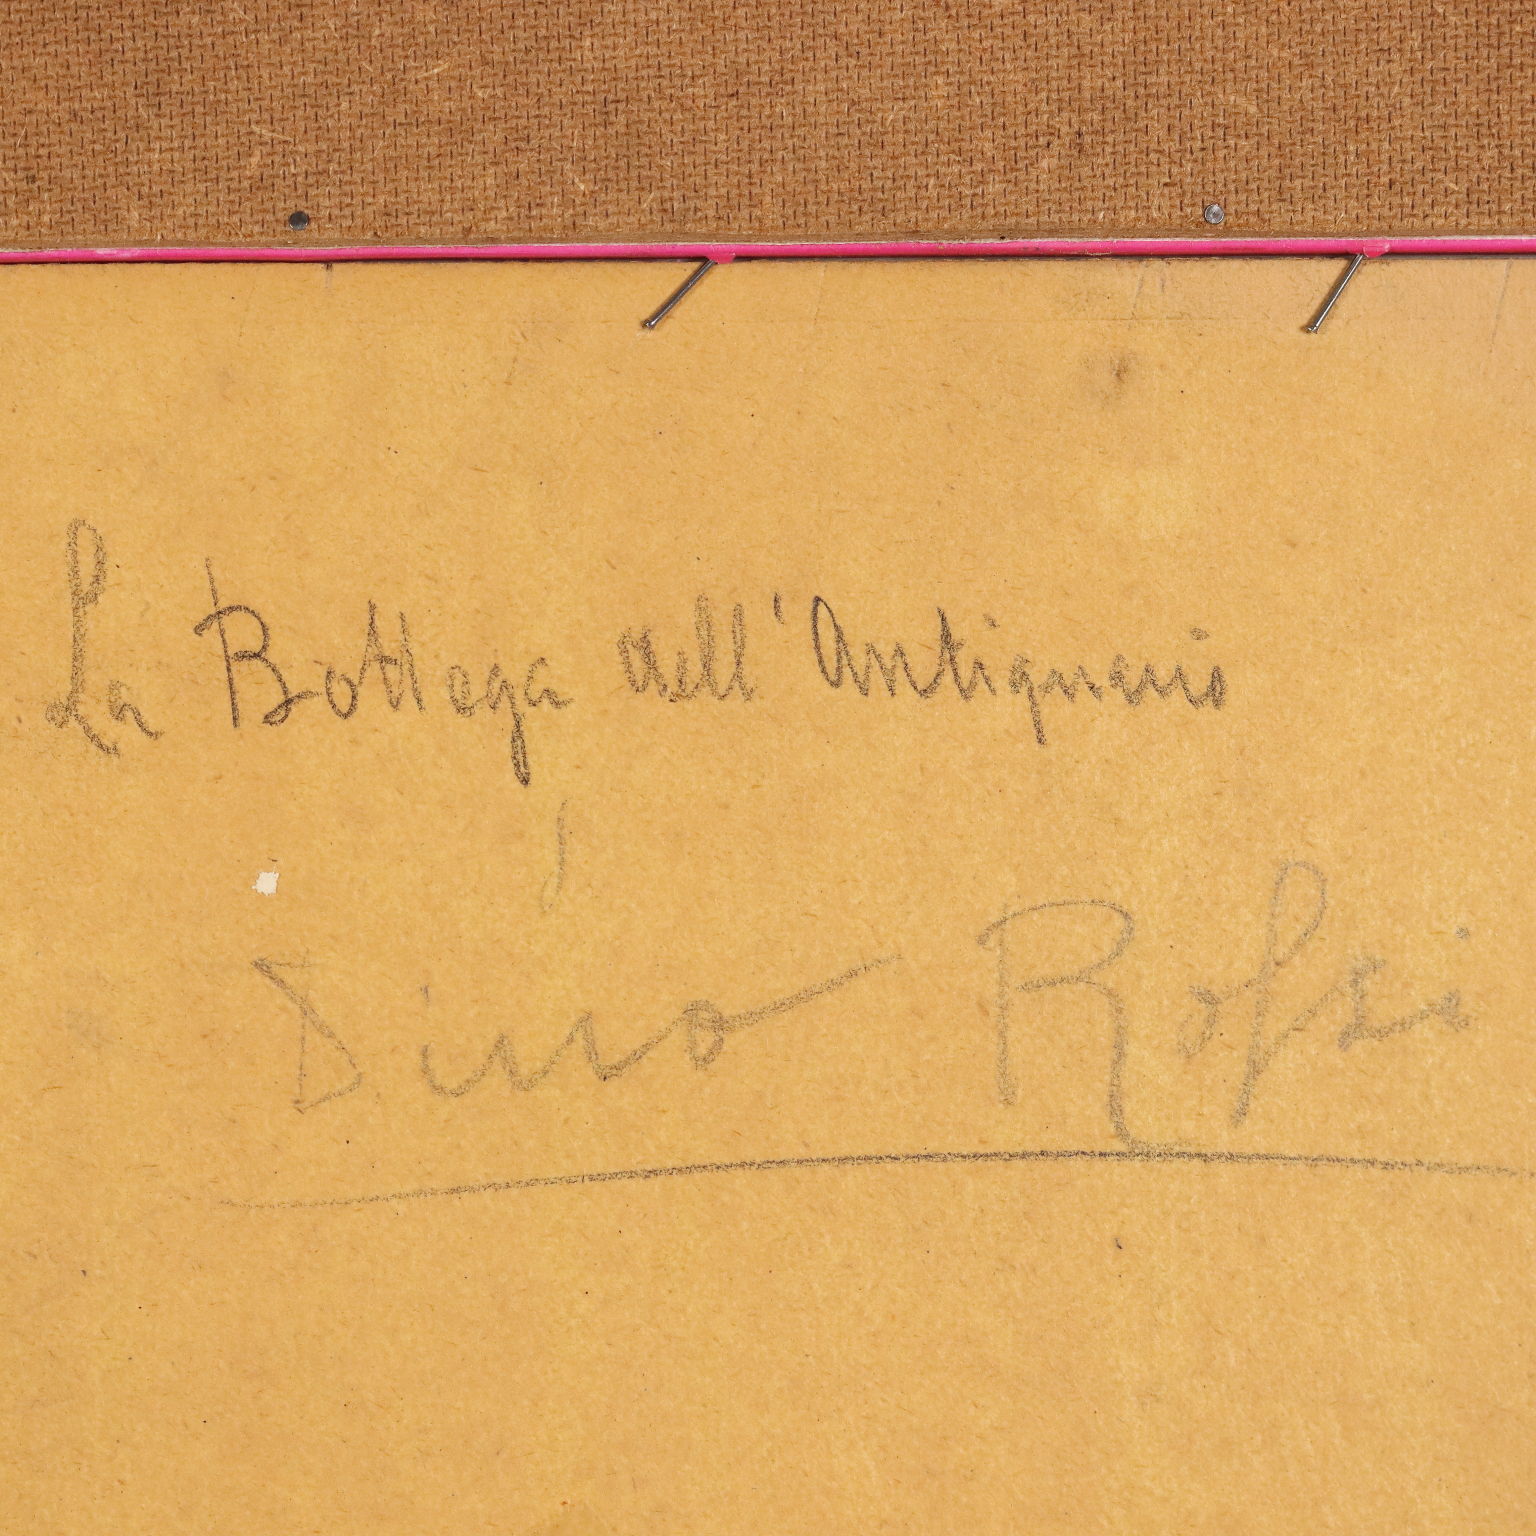 La Bottega dell'Antiquario
Dino Rossi